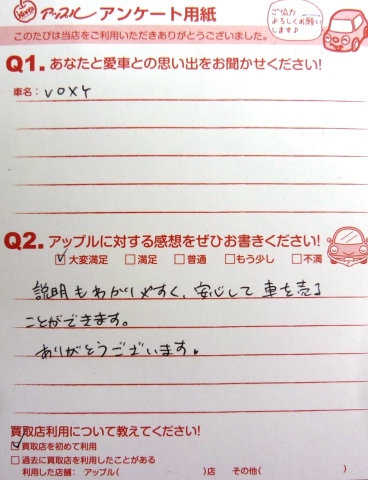 アップル アンケート用紙
ご協力
よろしくお願い
します♪
このたびは当店をご利用いただきありがとうございました。
Q1. あなたと愛車との思い出をお聞かせください!
車名: VOXY
Q2. アップルに対する感想をぜひお書きください!
☑大変満足 □満足 □普通 □もう少し □不満
説明もわかりやすく、安心して車を売る
ことができます。
ありがとうございます。
買取店利用について教えてください!
☑買取店を初めて利用
□過去に買取店を利用したことがある
利用した店舗: アップル( )店 その他( )